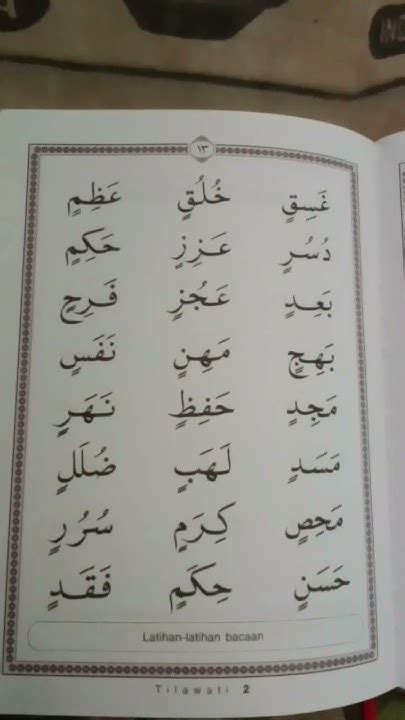 ١٣
غَسِقٍ خُلُقٍ عَظِمٍ
دُسُرٍ عَزِزٍ حَكِمٍ
بَعِدٍ عَجُزٍ فَرِحٍ
بَهِجٍ مَهِنٍ نَفَسٍ
مَجِدٍ حَفِظٍ نَهَرٍ
مَسَدٍ لَهَبٍ ضُلَلٍ
مَحِصٍ كِرَمٍ سُرُرٍ
حَسَنٍ حِكَمٍ فَقَدٍ
Latihan-latihan bacaan
Tilawati 2